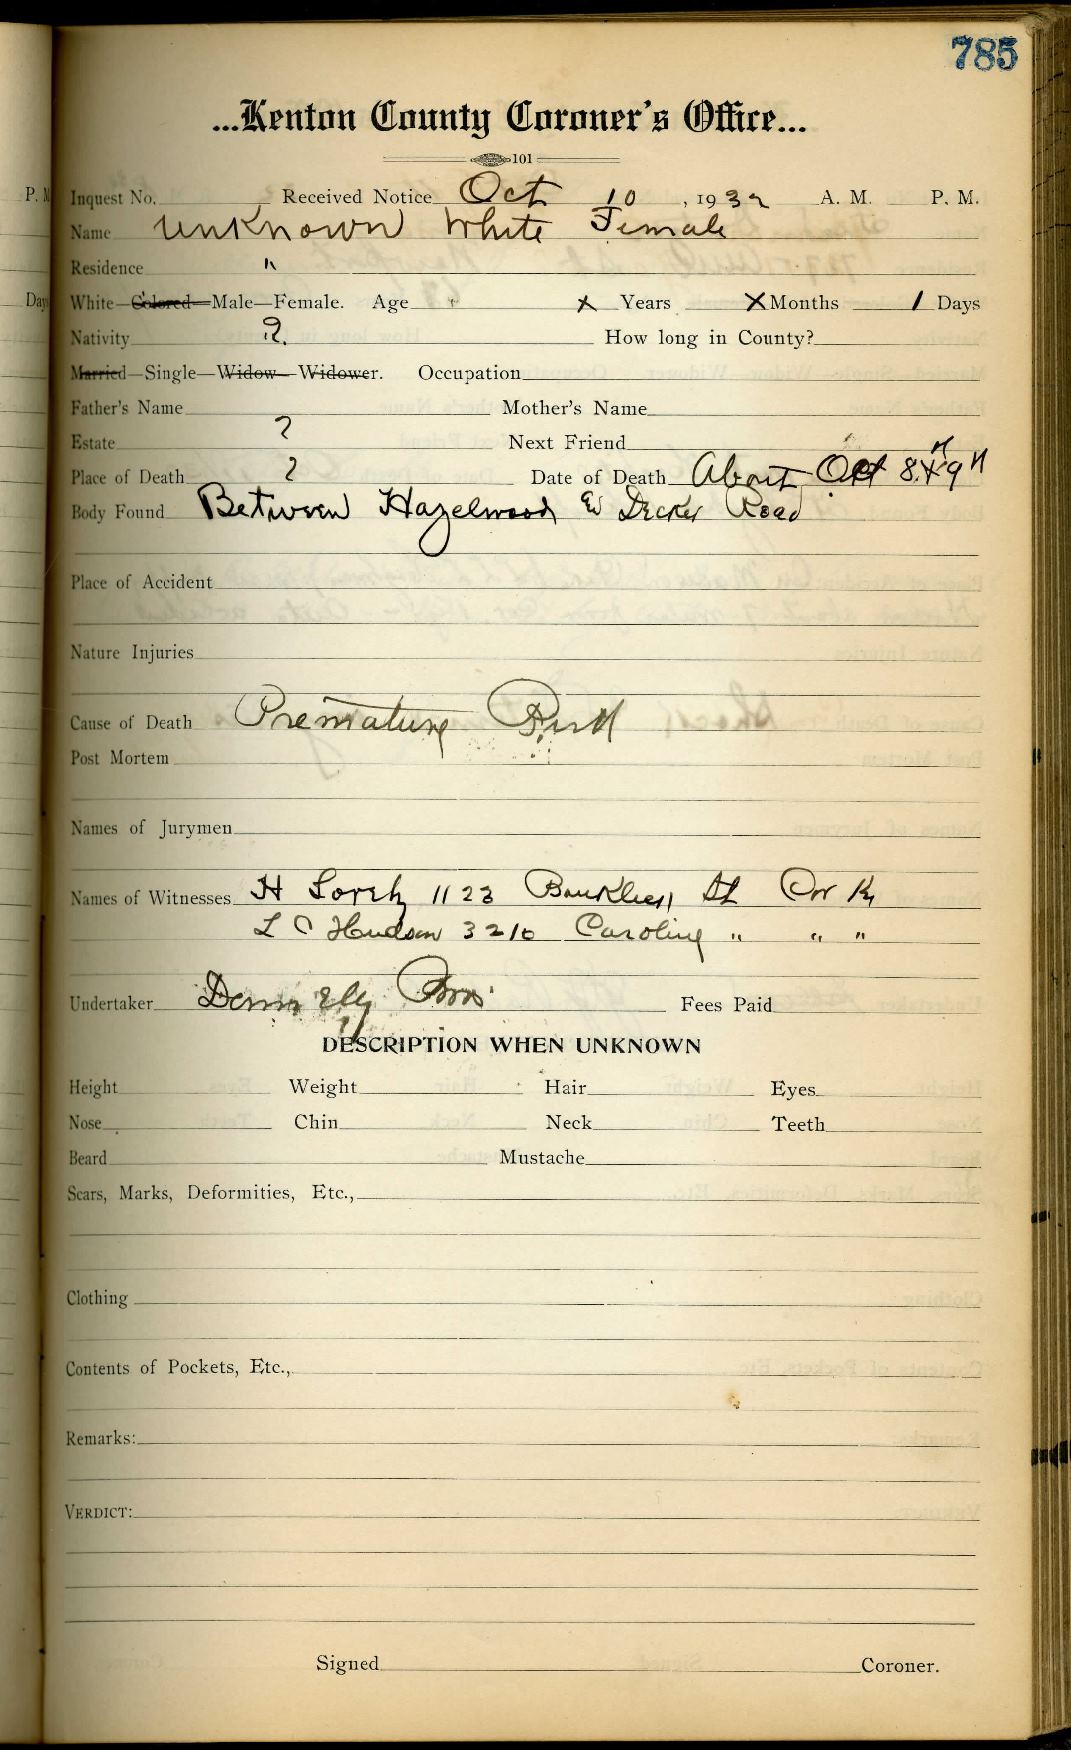 785
...Kenton County Coroner's Office...
101
P. M
Inquest No. Received Notice Oct 10, 1932 A. M. P. M.
Name Unknown White Female
Residence "
Days
White—Colored—Male—Female. Age X Years X Months 1 Days
Nativity ?. How long in County?
Married—Single—Widow—Widower. Occupation
Father's Name Mother's Name
Estate ? Next Friend
Place of Death ? Date of Death About Oct 8 9
Body Found Between Hazelwood & Decker Road
Place of Accident
Nature Injuries
Cause of Death Premature Birth
Post Mortem
Names of Jurymen
Names of Witnesses H 1123 St Cov Ky
L C Hudson 3210 Caroline " " "
Undertaker Donnelly Bros. Fees Paid
DESCRIPTION WHEN UNKNOWN
Height Weight Hair Eyes
Nose Chin Neck Teeth
Beard Mustache
Scars, Marks, Deformities, Etc.,
Clothing
Contents of Pockets, Etc.,
Remarks:
VERDICT:
Signed Coroner.